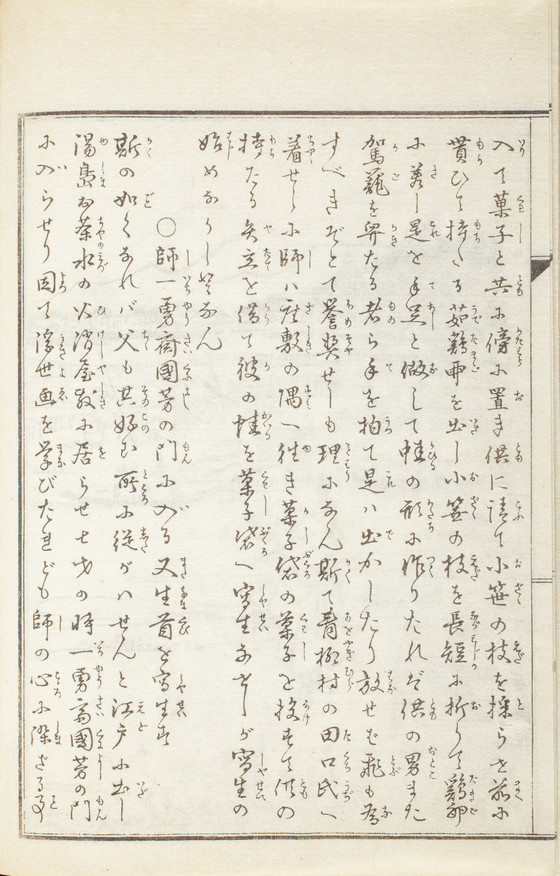 入て菓子と共に傍に置き供に請て小笹の枝を採らせ前に
貰ひて持たる茹鶏卵を出し小笠の枝を長短に折りて鶏卵
に差し是を手足と做して蛙の形に作りたれバ供の男また
駕籠を舁たる者ら手を拍て是ハ出かしたり放せば飛も為
すべきぞとて誉契せしも理になん斯て青柳村の田口氏へ
着せしに師ハ座敷の隅へ徃き菓子袋の菓子を抜すて供の
持たる矢立を借て彼の蛙を菓子袋へ写生なせしが写生の
始めなりしとなん
○師一勇斎國芳の門に入る又生首を写生す
斯の如くなれバ父も其好む所に従がハせんと江戸に出し
湯島お茶水の火消屋敷に居らせ七才の時一勇斎國芳の門
に入らせり因て浮世画を学びたれども師の心に深さる事